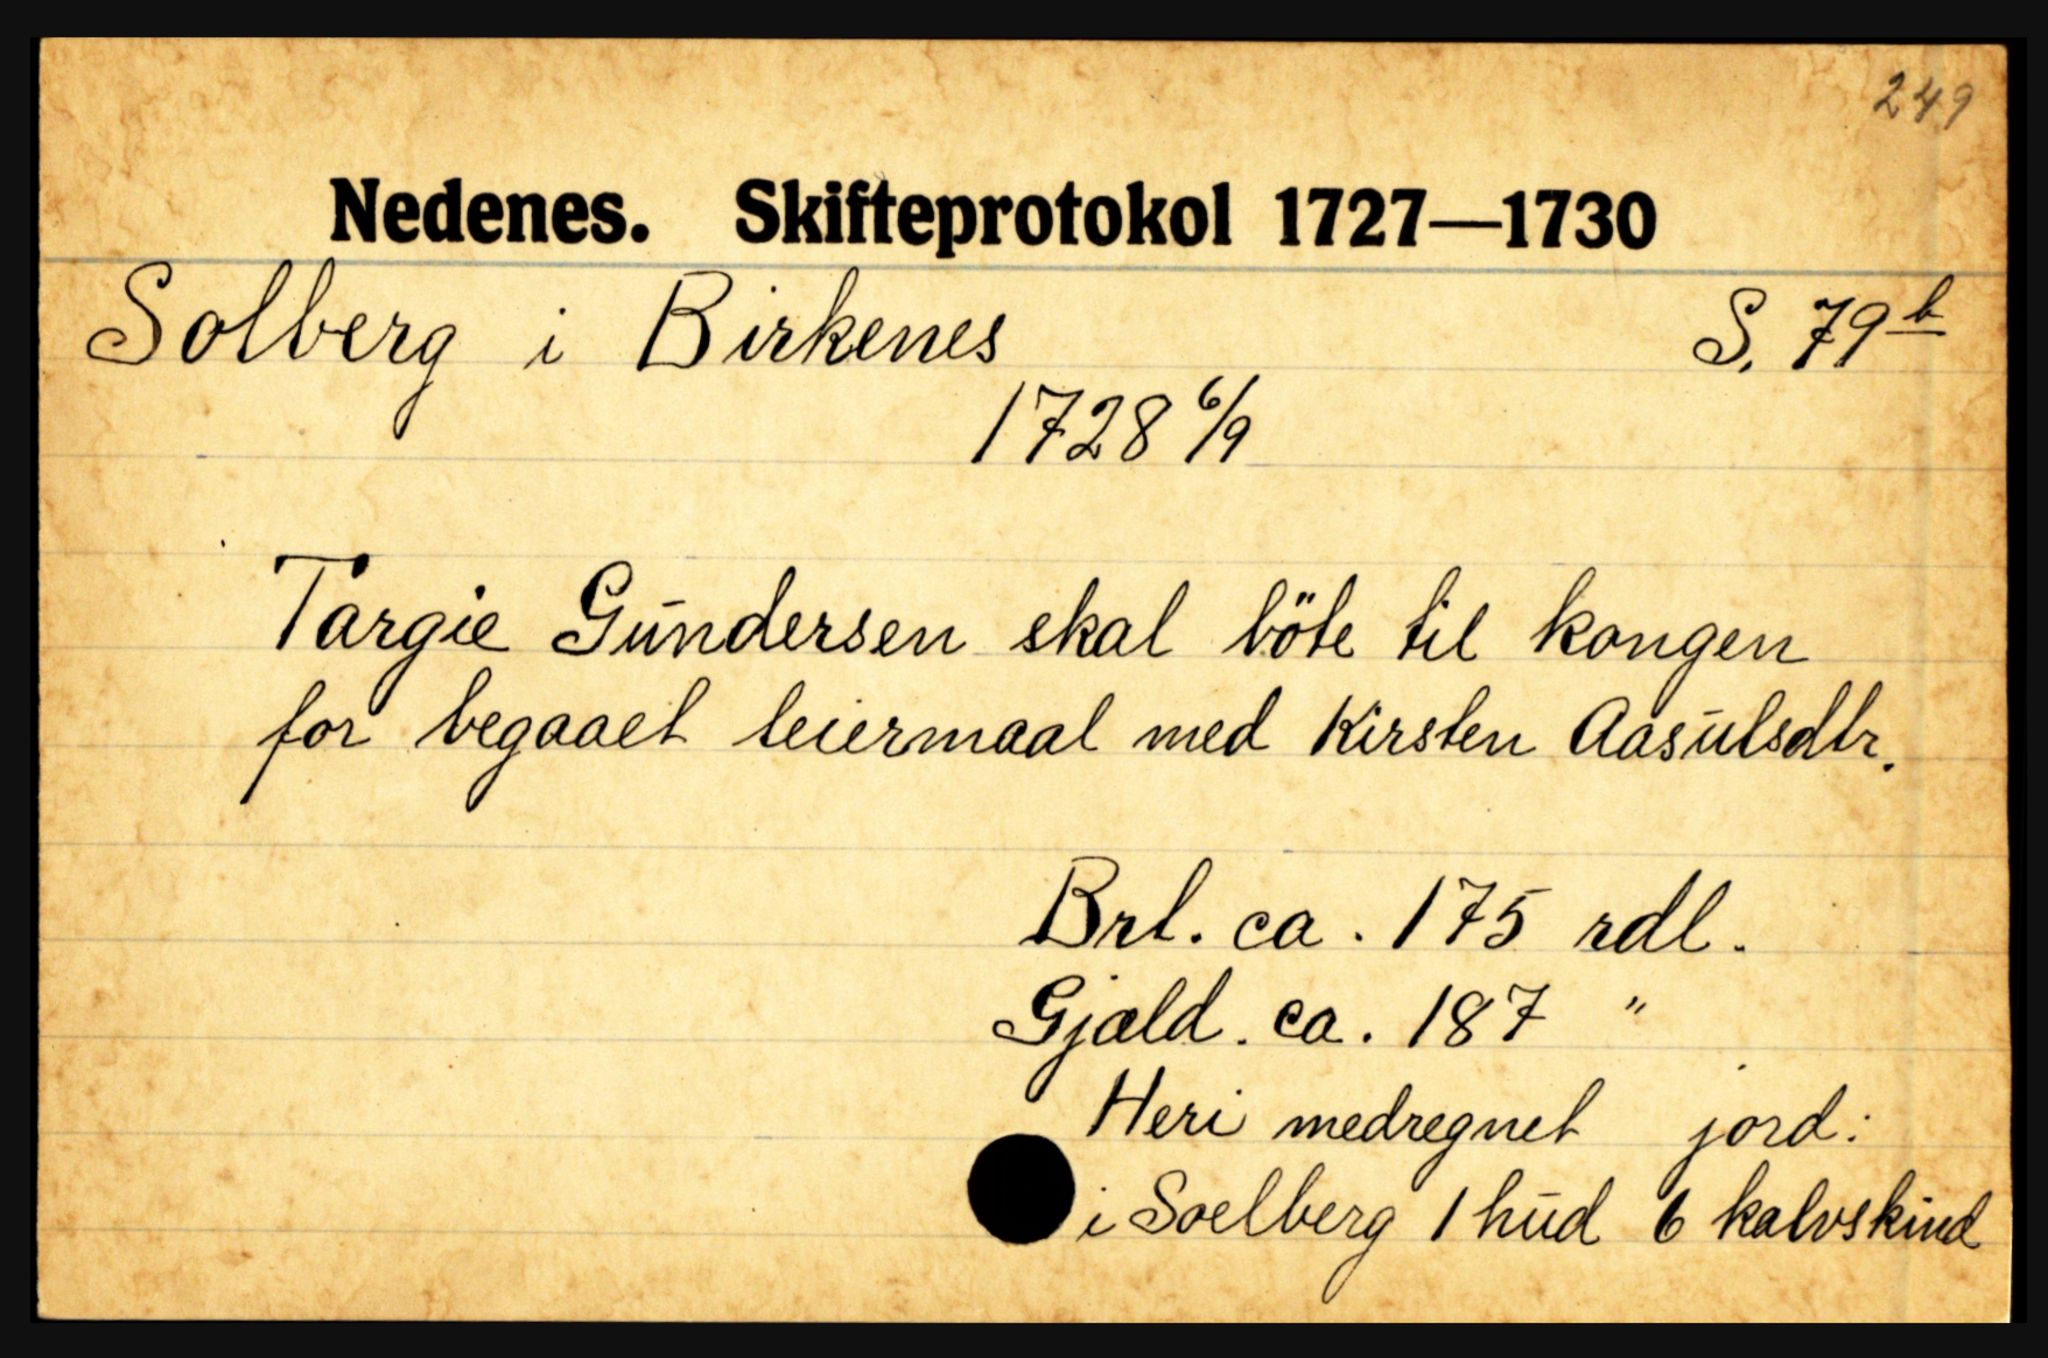 249
Nedenes. Skifteprotokol 1727—1730
Solberg i Birkenes S. 79b
1728 6/9
Targie Gundersen skal böte til kongen
for begaaet leiermaal med Kirsten Aasulsdtr.
Brt. ca. 175 rdl.
Gjæld. ca. 187 "
Heri medregnet jord:
i Soelberg 1 hud 6 kalvskind